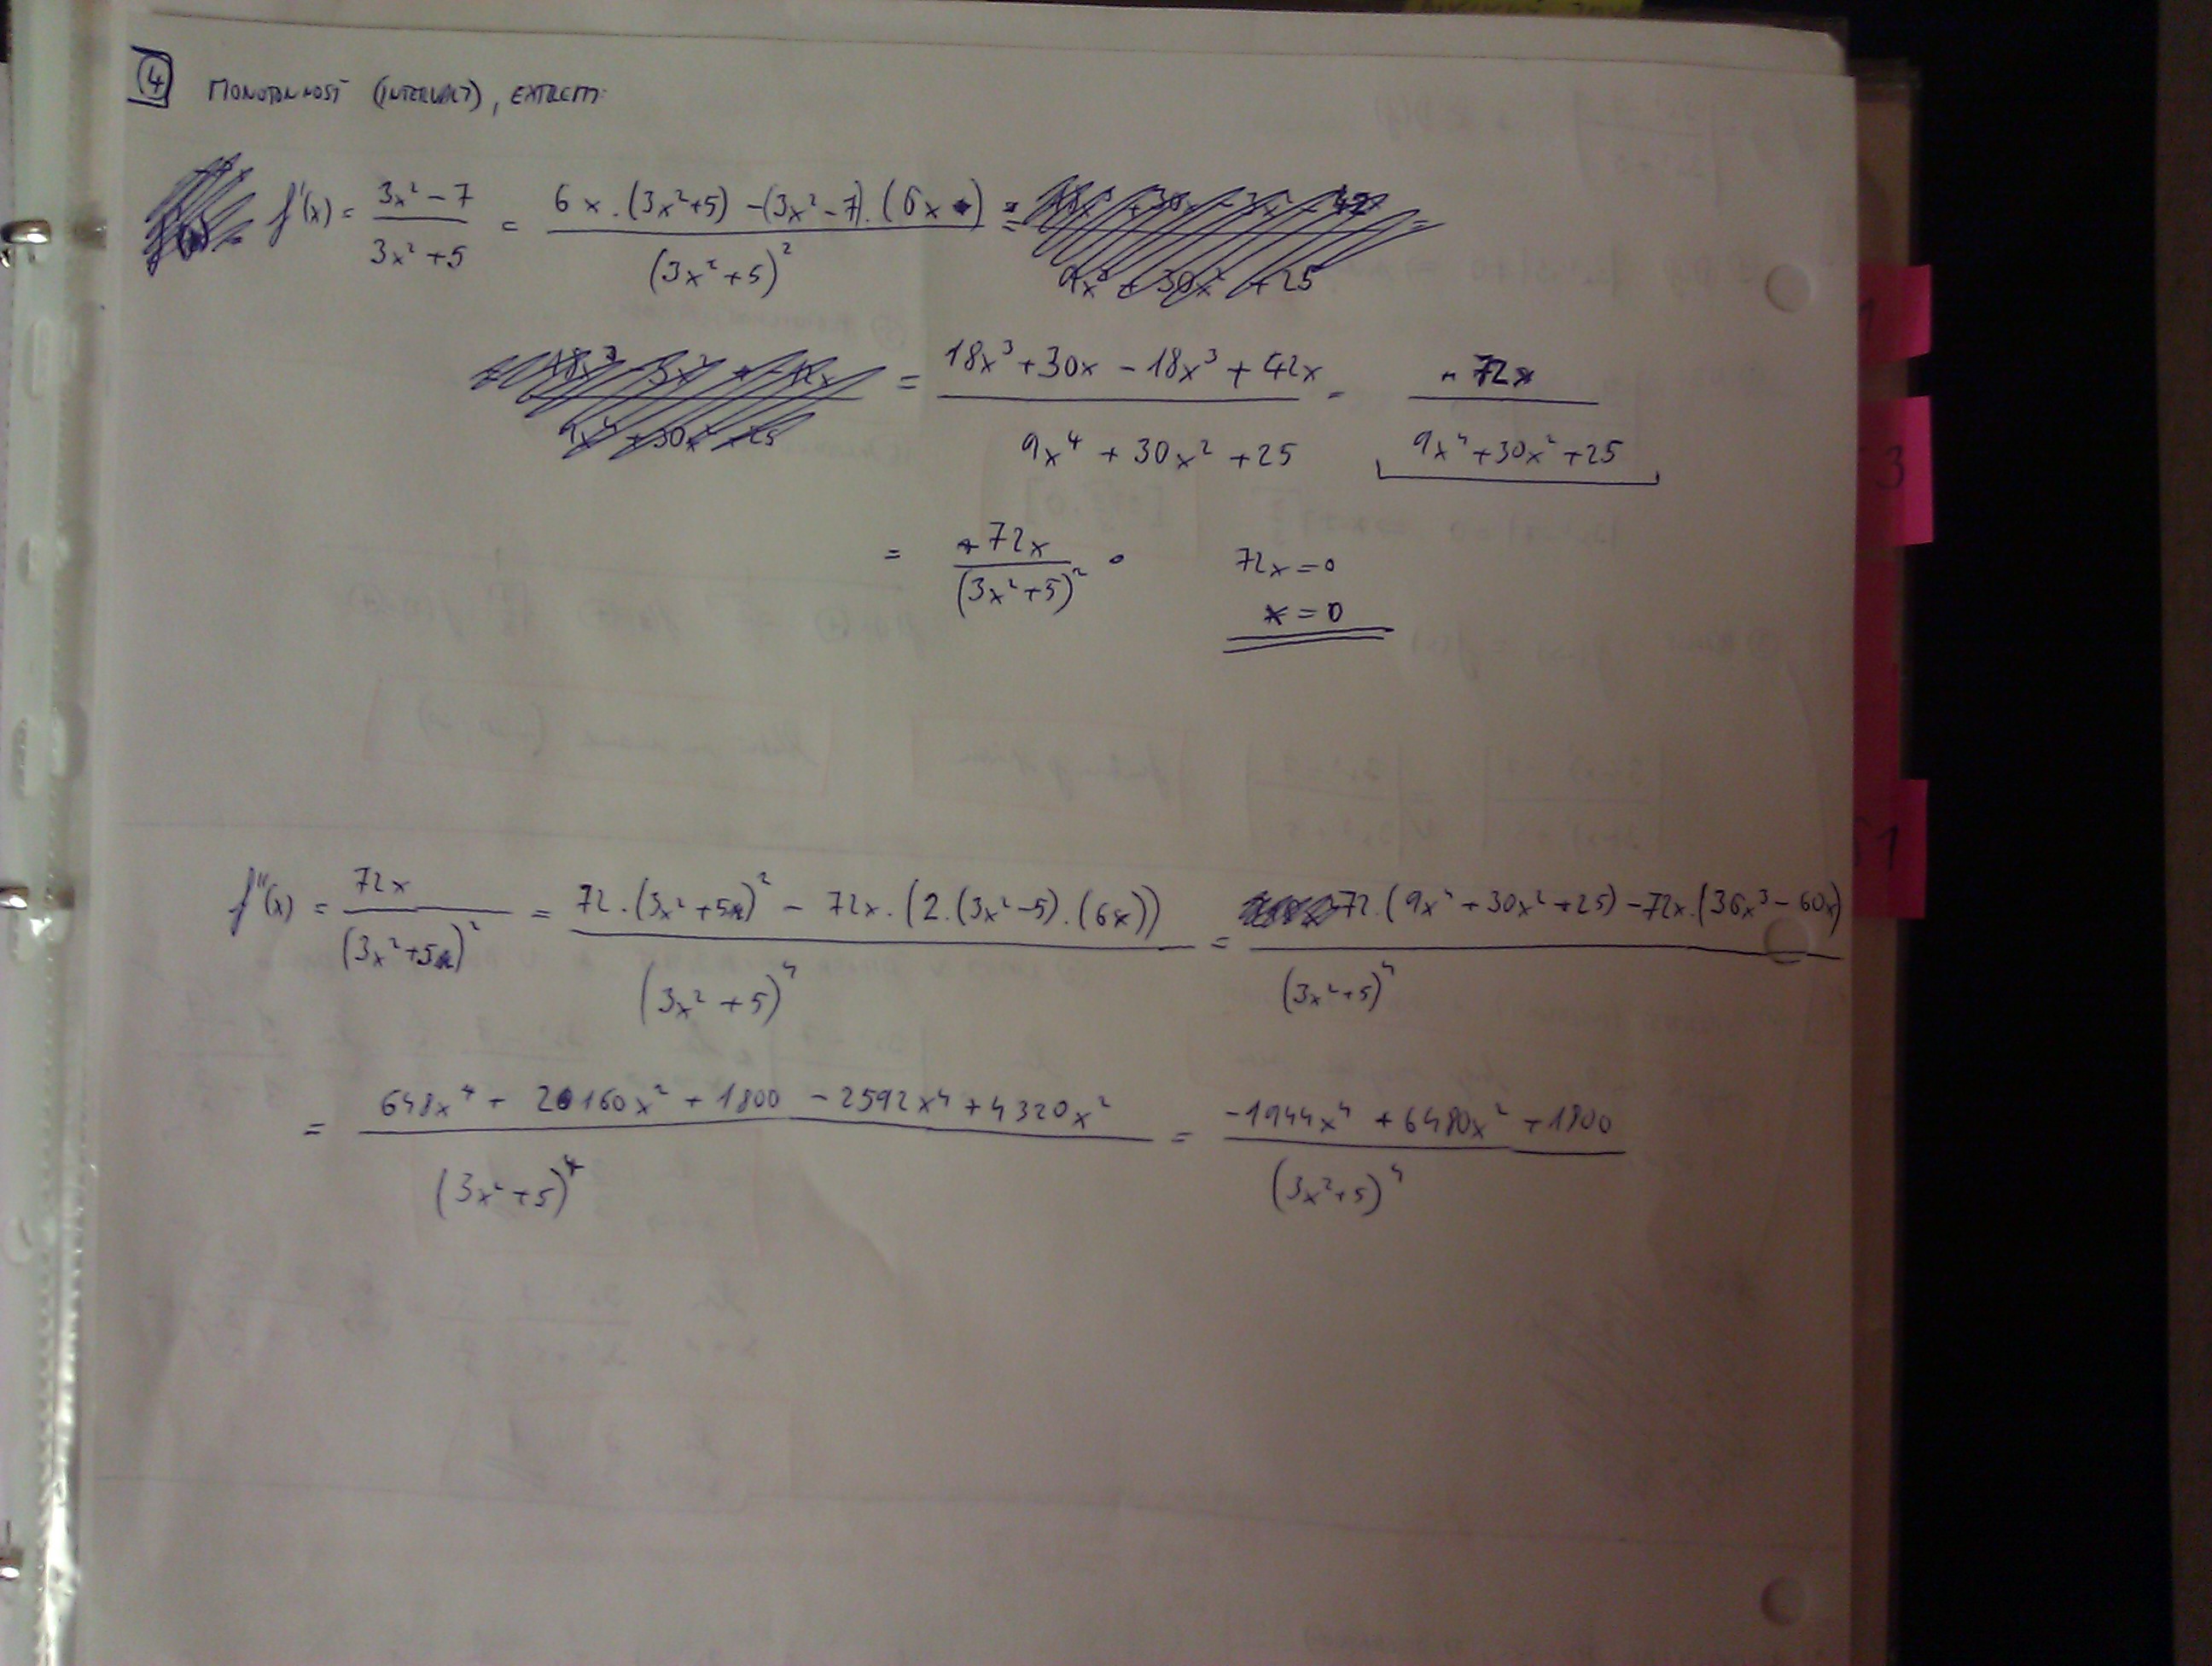 ④ MONOTONNOST (INTERVALY), EXTREM:
f'(x) = (3x² - 7)/(3x² + 5) = (6x . (3x²+5) - (3x² - 7) . (6x))/(3x² + 5)² =
= (18x³ + 30x - 18x³ + 42x)/(9x⁴ + 30x² + 25) = (+ 72x)/(9x⁴ + 30x² + 25)
= (+ 72x)/(3x² + 5)²
72x = 0
x = 0
f''(x) = 72x/(3x² + 5)² = (72 . (3x² + 5)² - 72x . (2 . (3x² - 5) . (6x)))/(3x² + 5)⁴ = (72 . (9x⁴ + 30x² + 25) - 72x . (36x³ - 60x))/(3x² + 5)⁴
= (648x⁴ + 2160x² + 1800 - 2592x⁴ + 4320x²)/(3x² + 5)⁴ = (-1944x⁴ + 6480x² + 1800)/(3x² + 5)⁴